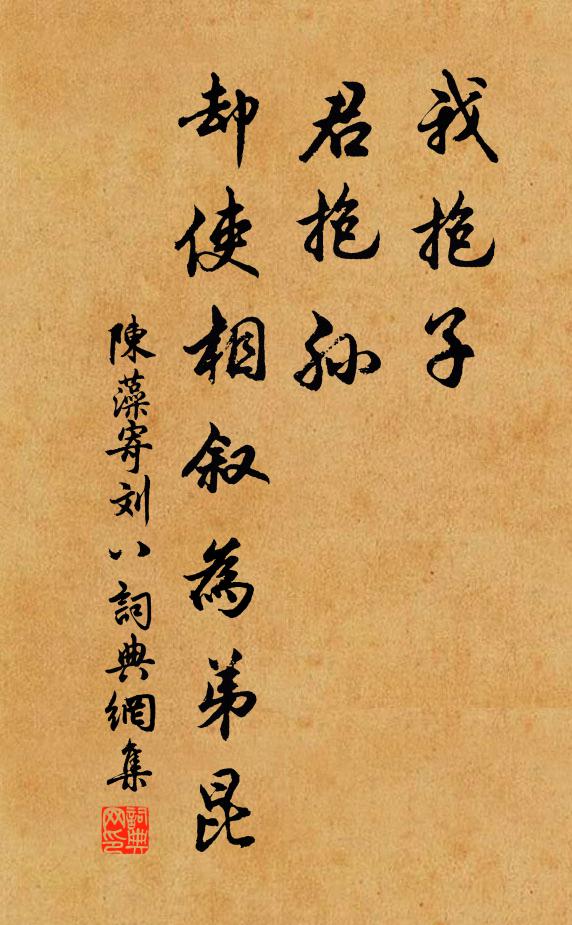 我抱子
君抱孙
却使相叙為弟昆
陳藻寄刘八詞典網集
詞典网印